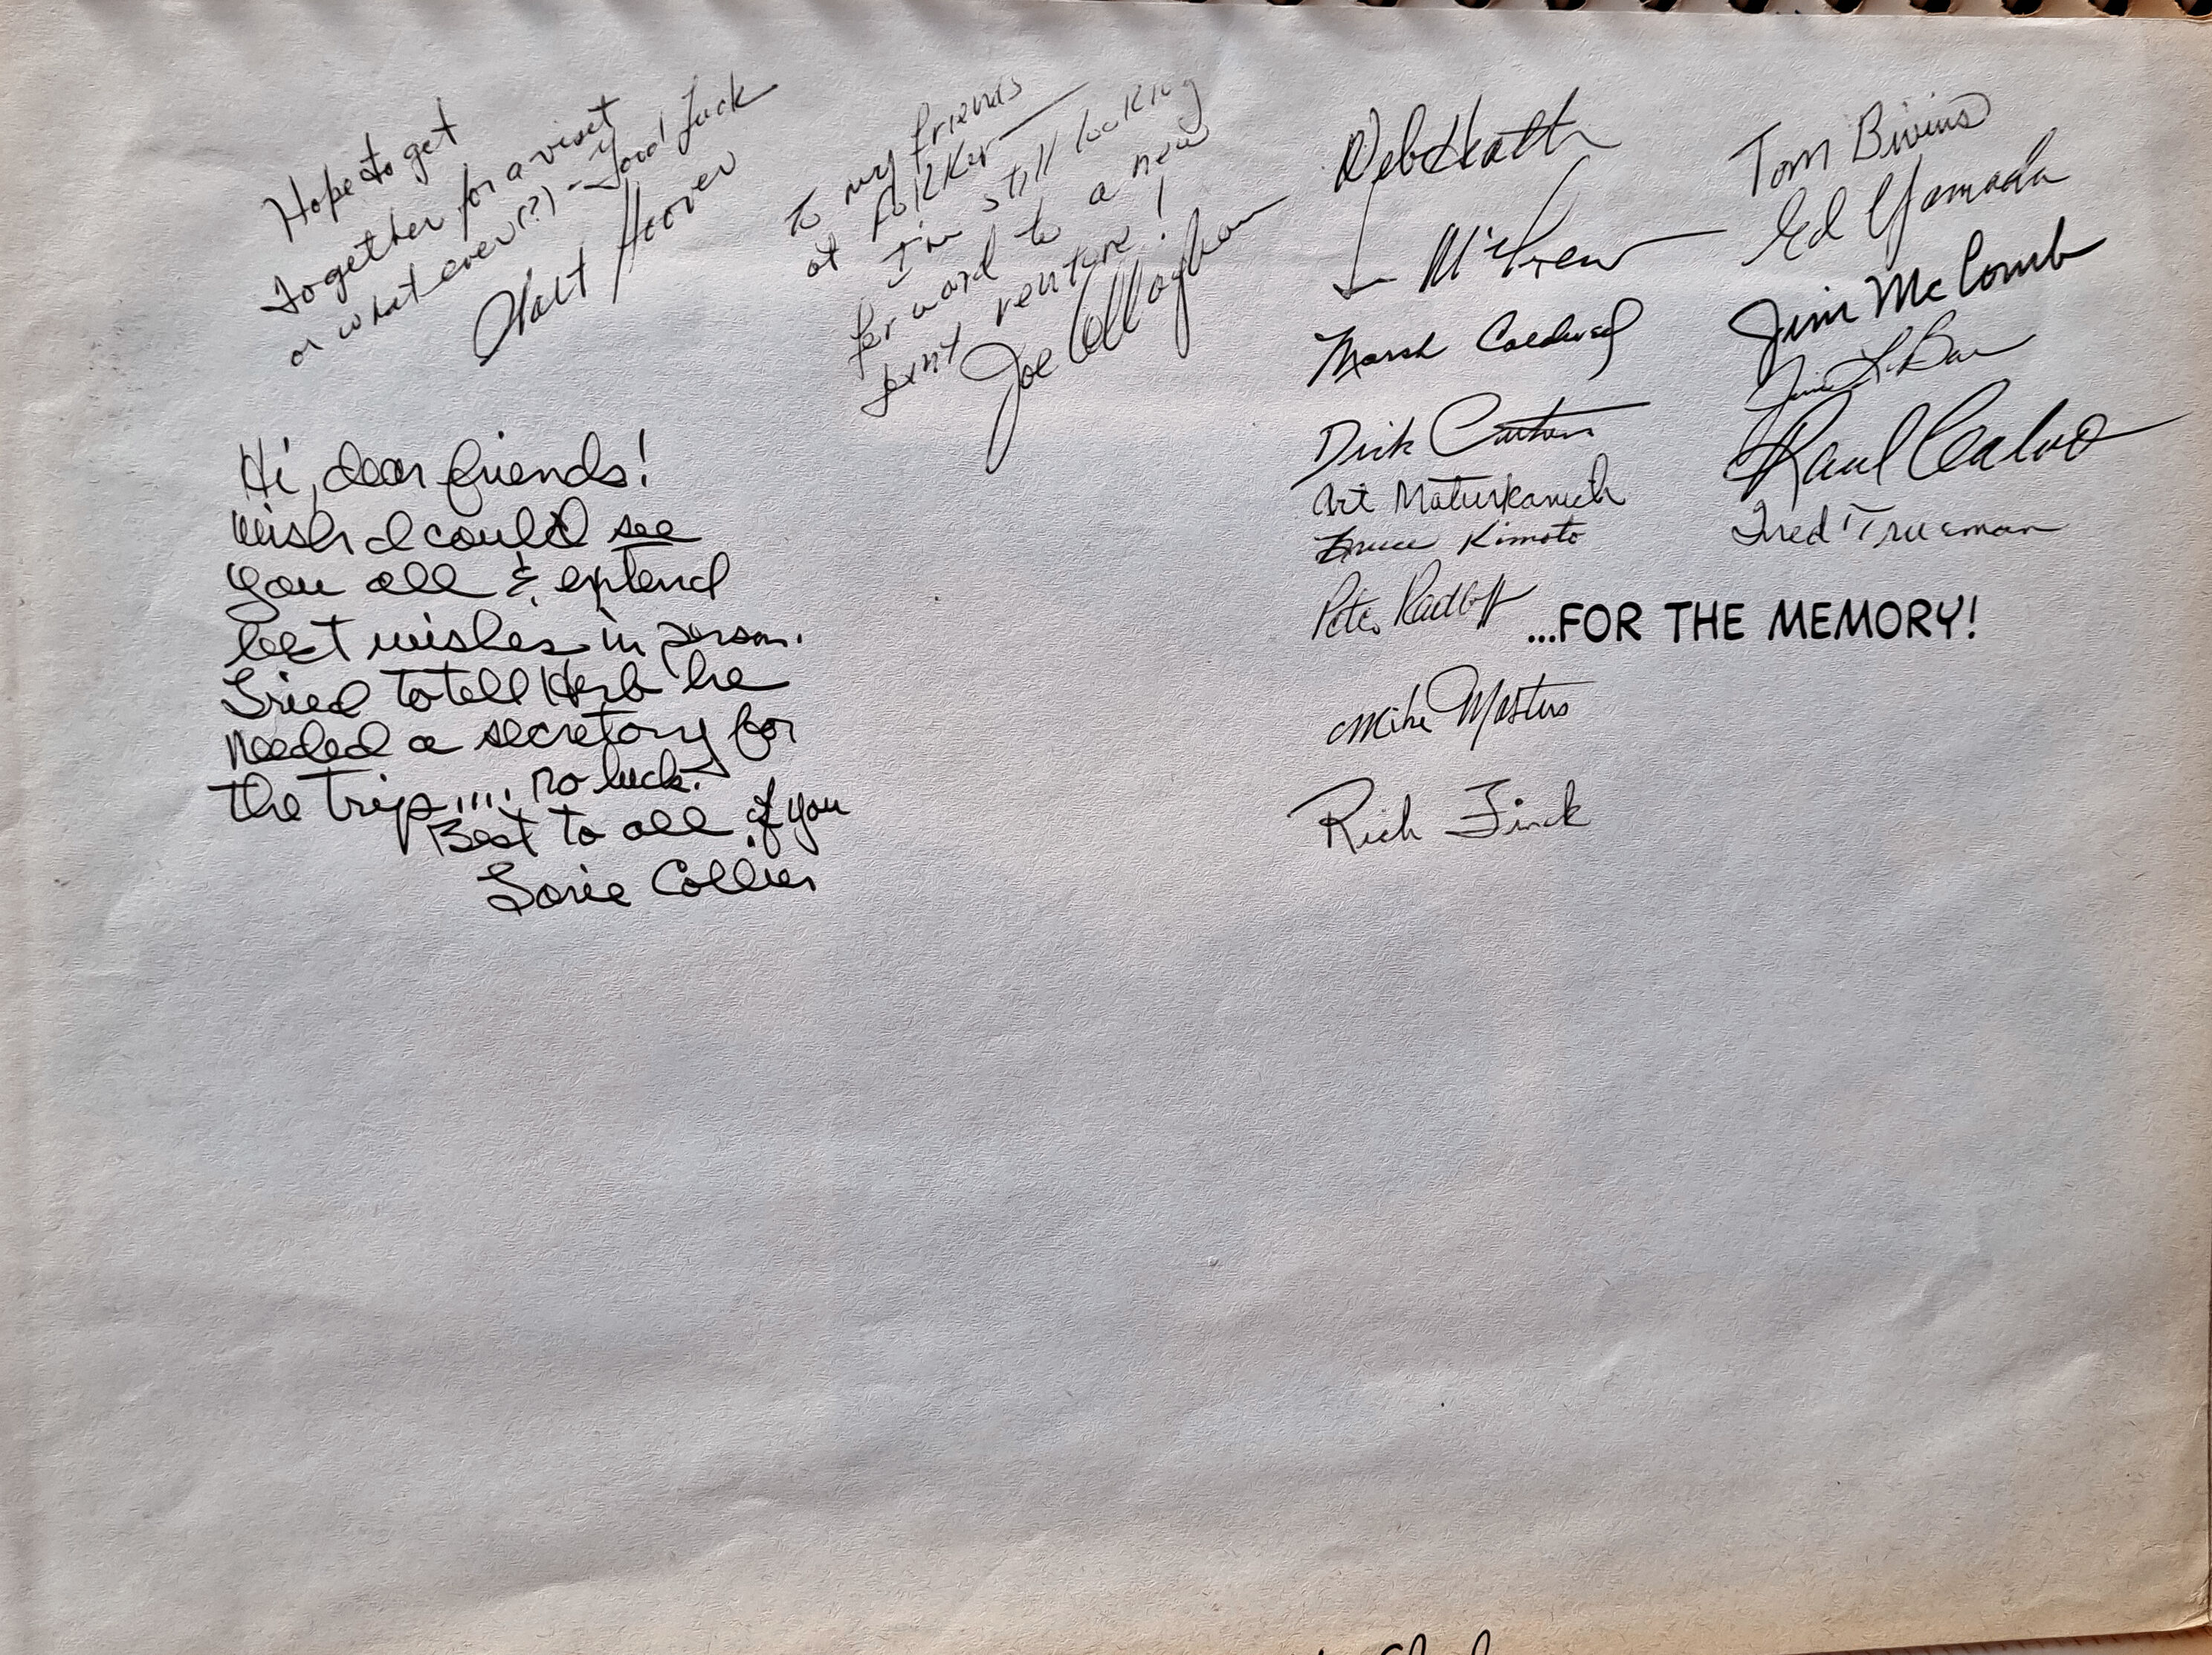 Hope to get
together for a visit
or what ever(?) - Good Luck
Walt Hoover
To my friends
at Fokker
I'm still looking
forward to a new
joint venture!
Joe Callaghan
Hi, dear friends!
Wish I could see
you all & extend
best wishes in person.
Tried to tell Herb he
needed a secretary for
the trip.... no luck.
Best to all of you
Lorie Collier
Deb Heath
McGrew
Marsh Caldwell
Dirk
Art Maturkanich
Bruce Kimoto
Pete Radloff
Mike Masters
Rich Finck
Tom Bivins
Ed Yamada
Jim McComb
Raul Calvo
Fred Trueman
...FOR THE MEMORY!